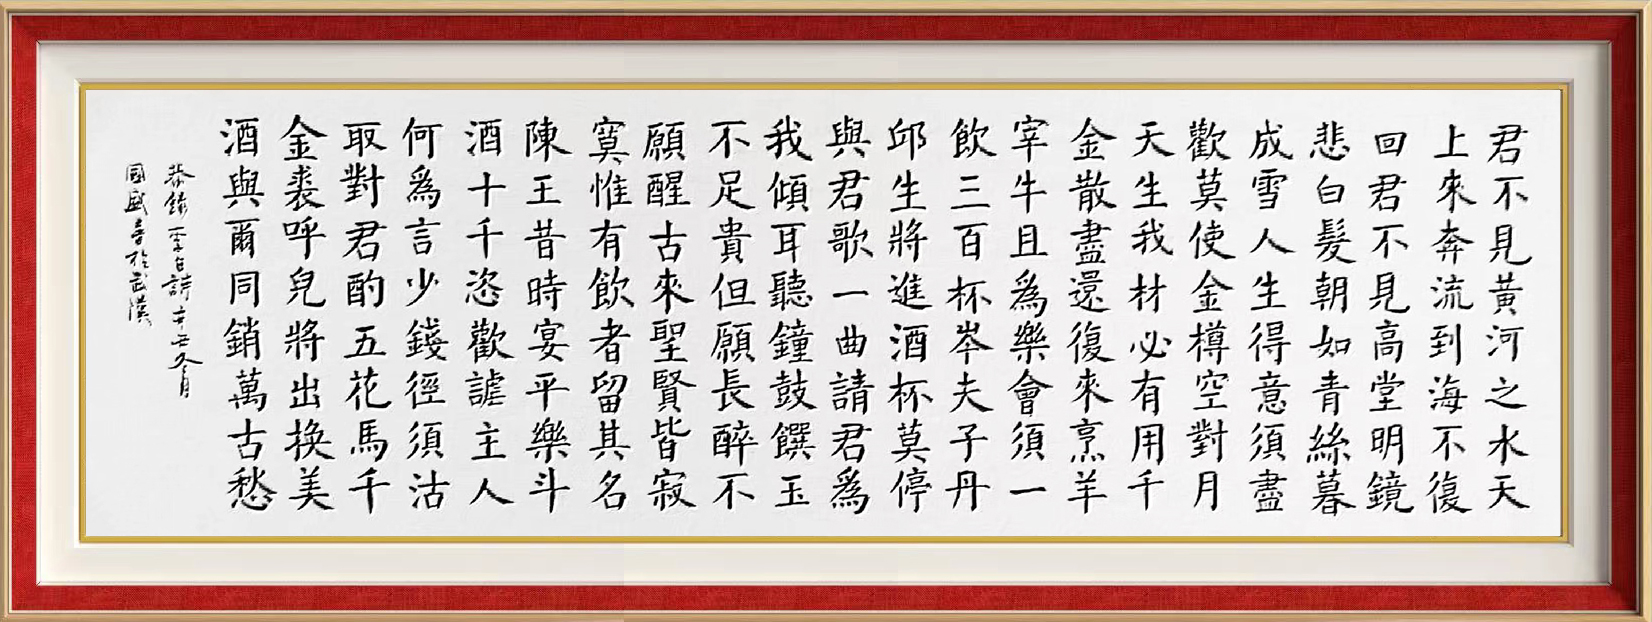 君不見黃河之水天
上來奔流到海不復
回君不見高堂明鏡
悲白髮朝如青絲暮
成雪人生得意須盡
歡莫使金樽空對月
天生我材必有用千
金散盡還復來烹羊
宰牛且為樂會須一
飲三百杯岑夫子丹
邱生將進酒杯莫停
與君歌一曲請君為
我傾耳聽鐘鼓饌玉
不足貴但願長醉不
願醒古來聖賢皆寂
寞惟有飲者留其名
陳王昔時宴平樂斗
酒十千恣歡謔主人
何為言少錢徑須沽
取對君酌五花馬千
金裘呼兒將出換美
酒與爾同銷萬古愁
恭錄李白詩辛丑冬月
國盛書於武漢